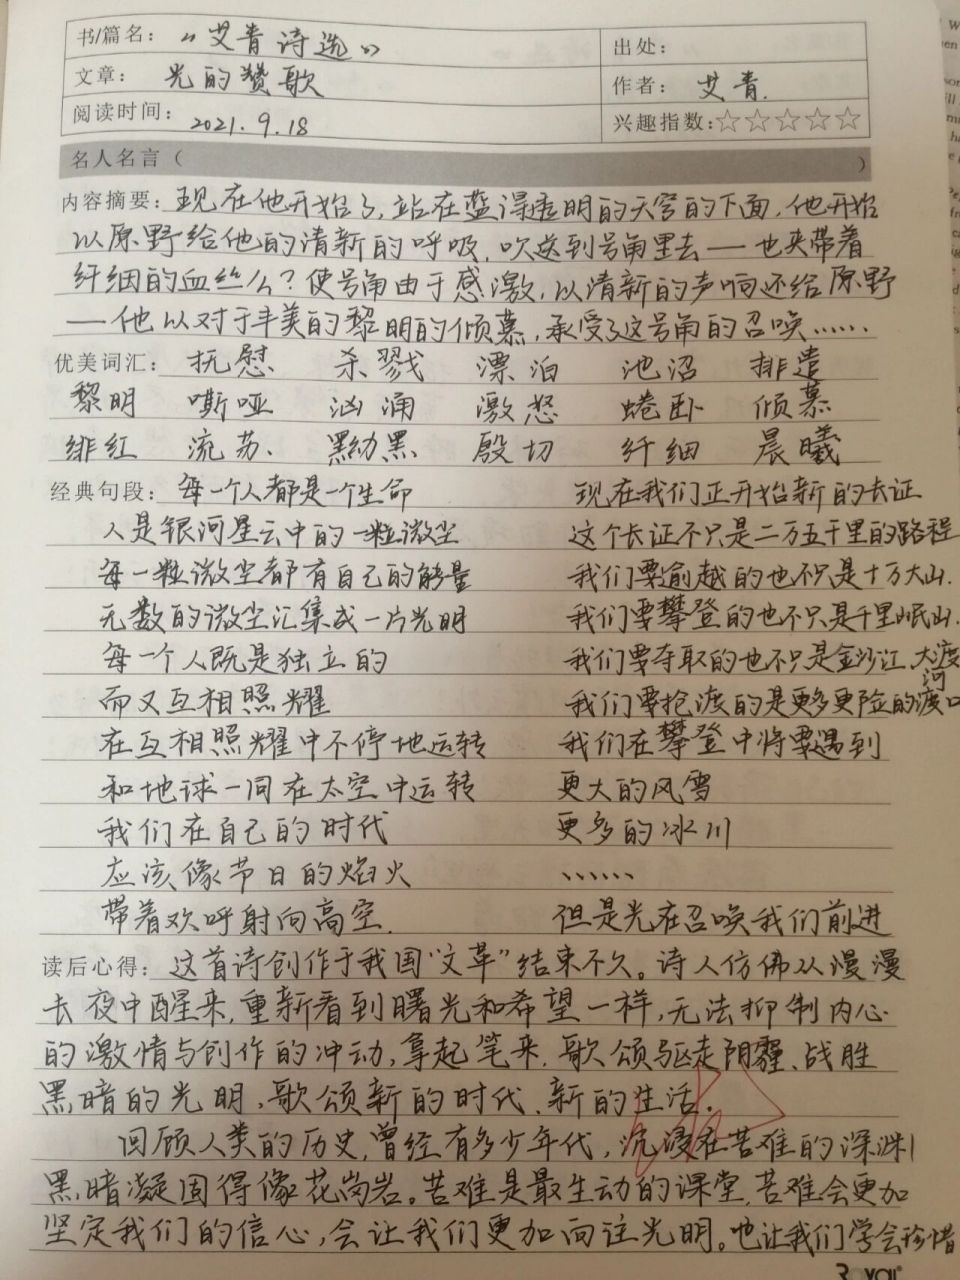 书/篇名： “艾青诗选” 出处：
文章： 光的赞歌 作者： 艾青.
阅读时间： 2021.9.18 兴趣指数：☆☆☆☆☆
名人名言（ ）
内容摘要：现在他开始了,站在蓝得透明的天穹的下面,他开始
以原野给他的清新的呼吸,吹送到号角里去——也夹带着
纤细的血丝么？使号角由于感激,以清新的声响还给原野
——他以对于丰美的黎明的倾慕,承受了这号角的召唤……
优美词汇： 抚慰 杀戮 漂泊 池沼 排遣
黎明 嘶哑 汹涌 激怒 蜷卧 倾慕
绯红 流苏. 黑黝黑 殷切 纤细 晨曦
经典句段：每一个人都是一个生命 现在我们正开始新的长征
人是银河星云中的一粒微尘 这个长证不只是二万五千里的路程
每一粒微尘都有自己的能量 我们要逾越的也不只是十万大山.
无数的微尘汇集成一片光明 我们要攀登的也不只是千里岷山.
每一个人既是独立的 我们要夺取的也不只是金沙江、大渡河
而又互相照耀 我们要抢渡的是更多更险的渡口
在互相照耀中不停地运转 我们在攀登中将要遇到
和地球一同在太空中运转 更大的风雪
我们在自己的时代 更多的冰川
应该像节日的焰火 ……
带着欢呼射向高空. 但是光在召唤我们前进
读后心得：这首诗创作于我国“文革”结束不久。诗人仿佛从漫漫
长夜中醒来,重新看到曙光和希望一样,无法抑制内心
的激情与创作的冲动,拿起笔来,歌颂驱走阴霾、战胜
黑暗的光明,歌颂新的时代、新的生活.
回顾人类的历史,曾经有多少年代,沉浸在苦难的深渊
黑暗凝固得像花岗岩。苦难是最生动的课堂,苦难会更加
坚定我们的信心,会让我们更加向往光明。也让我们学会珍惜